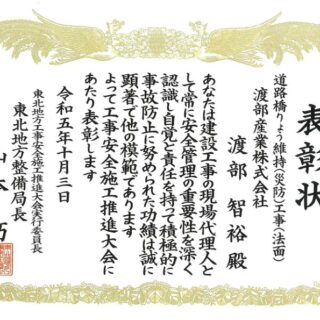 表彰状
道路橋りょう維持(災防)工事(法面)
渡部産業株式会社
渡部 智裕 殿
あなたは建設工事の現場代理人と
して常に安全管理の重要性を深く
認識し自覚と責任を持って積極的に
事故防止に努められた功績は誠に
顕著で他の模範であります
よって工事安全施工推進大会に
あたり表彰します
令和五年十月三日
東北地方工事安全施工推進大会実行委員長
東北地方整備局長
山本 巧